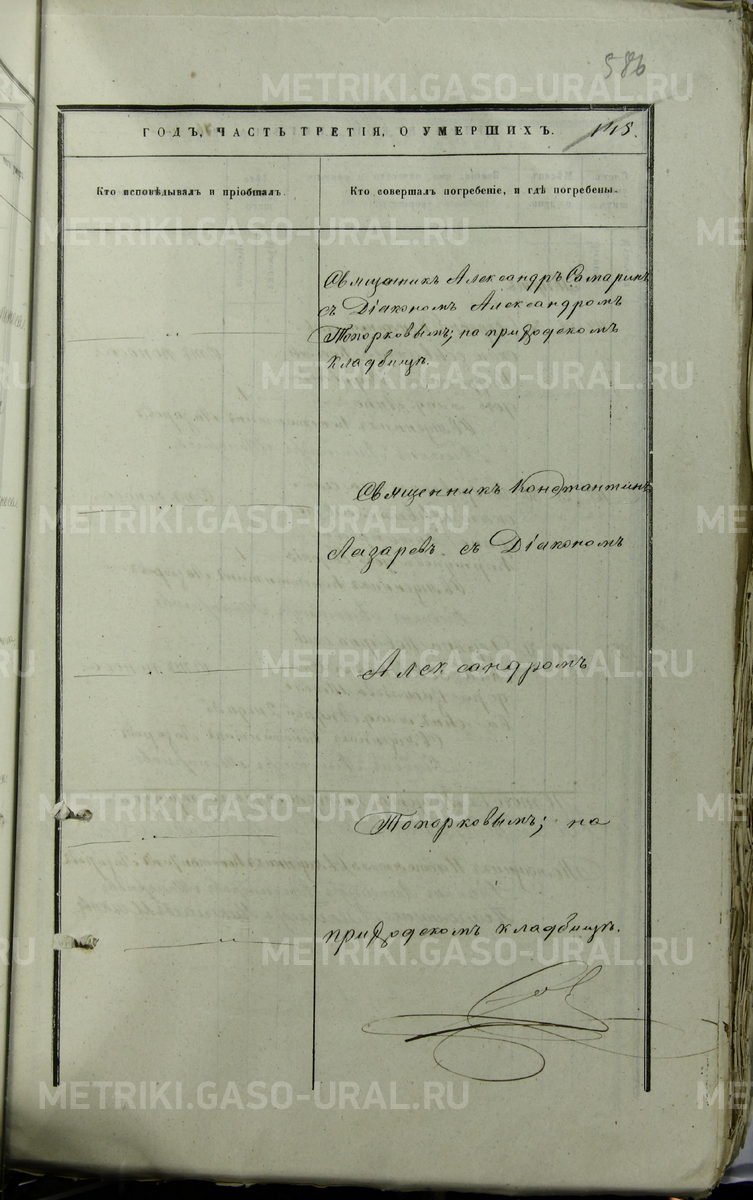 586
ГОДЪ, ЧАСТЬ ТРЕТІЯ, О УМЕРШИХЪ. 115.
Кто исповѣдывалъ и пріобщалъ.
Кто совершалъ погребеніе, и гдѣ погребены.
Священникъ Александръ Самаринъ
съ Діакономъ Александромъ
Топорковымъ; на приходскомъ
кладбищѣ.
Священникъ Константинъ
Лазаревъ съ Діакономъ
Александромъ
Топорковымъ; на
приходскомъ кладбищѣ.
METRIKI.GASO-URAL.RU